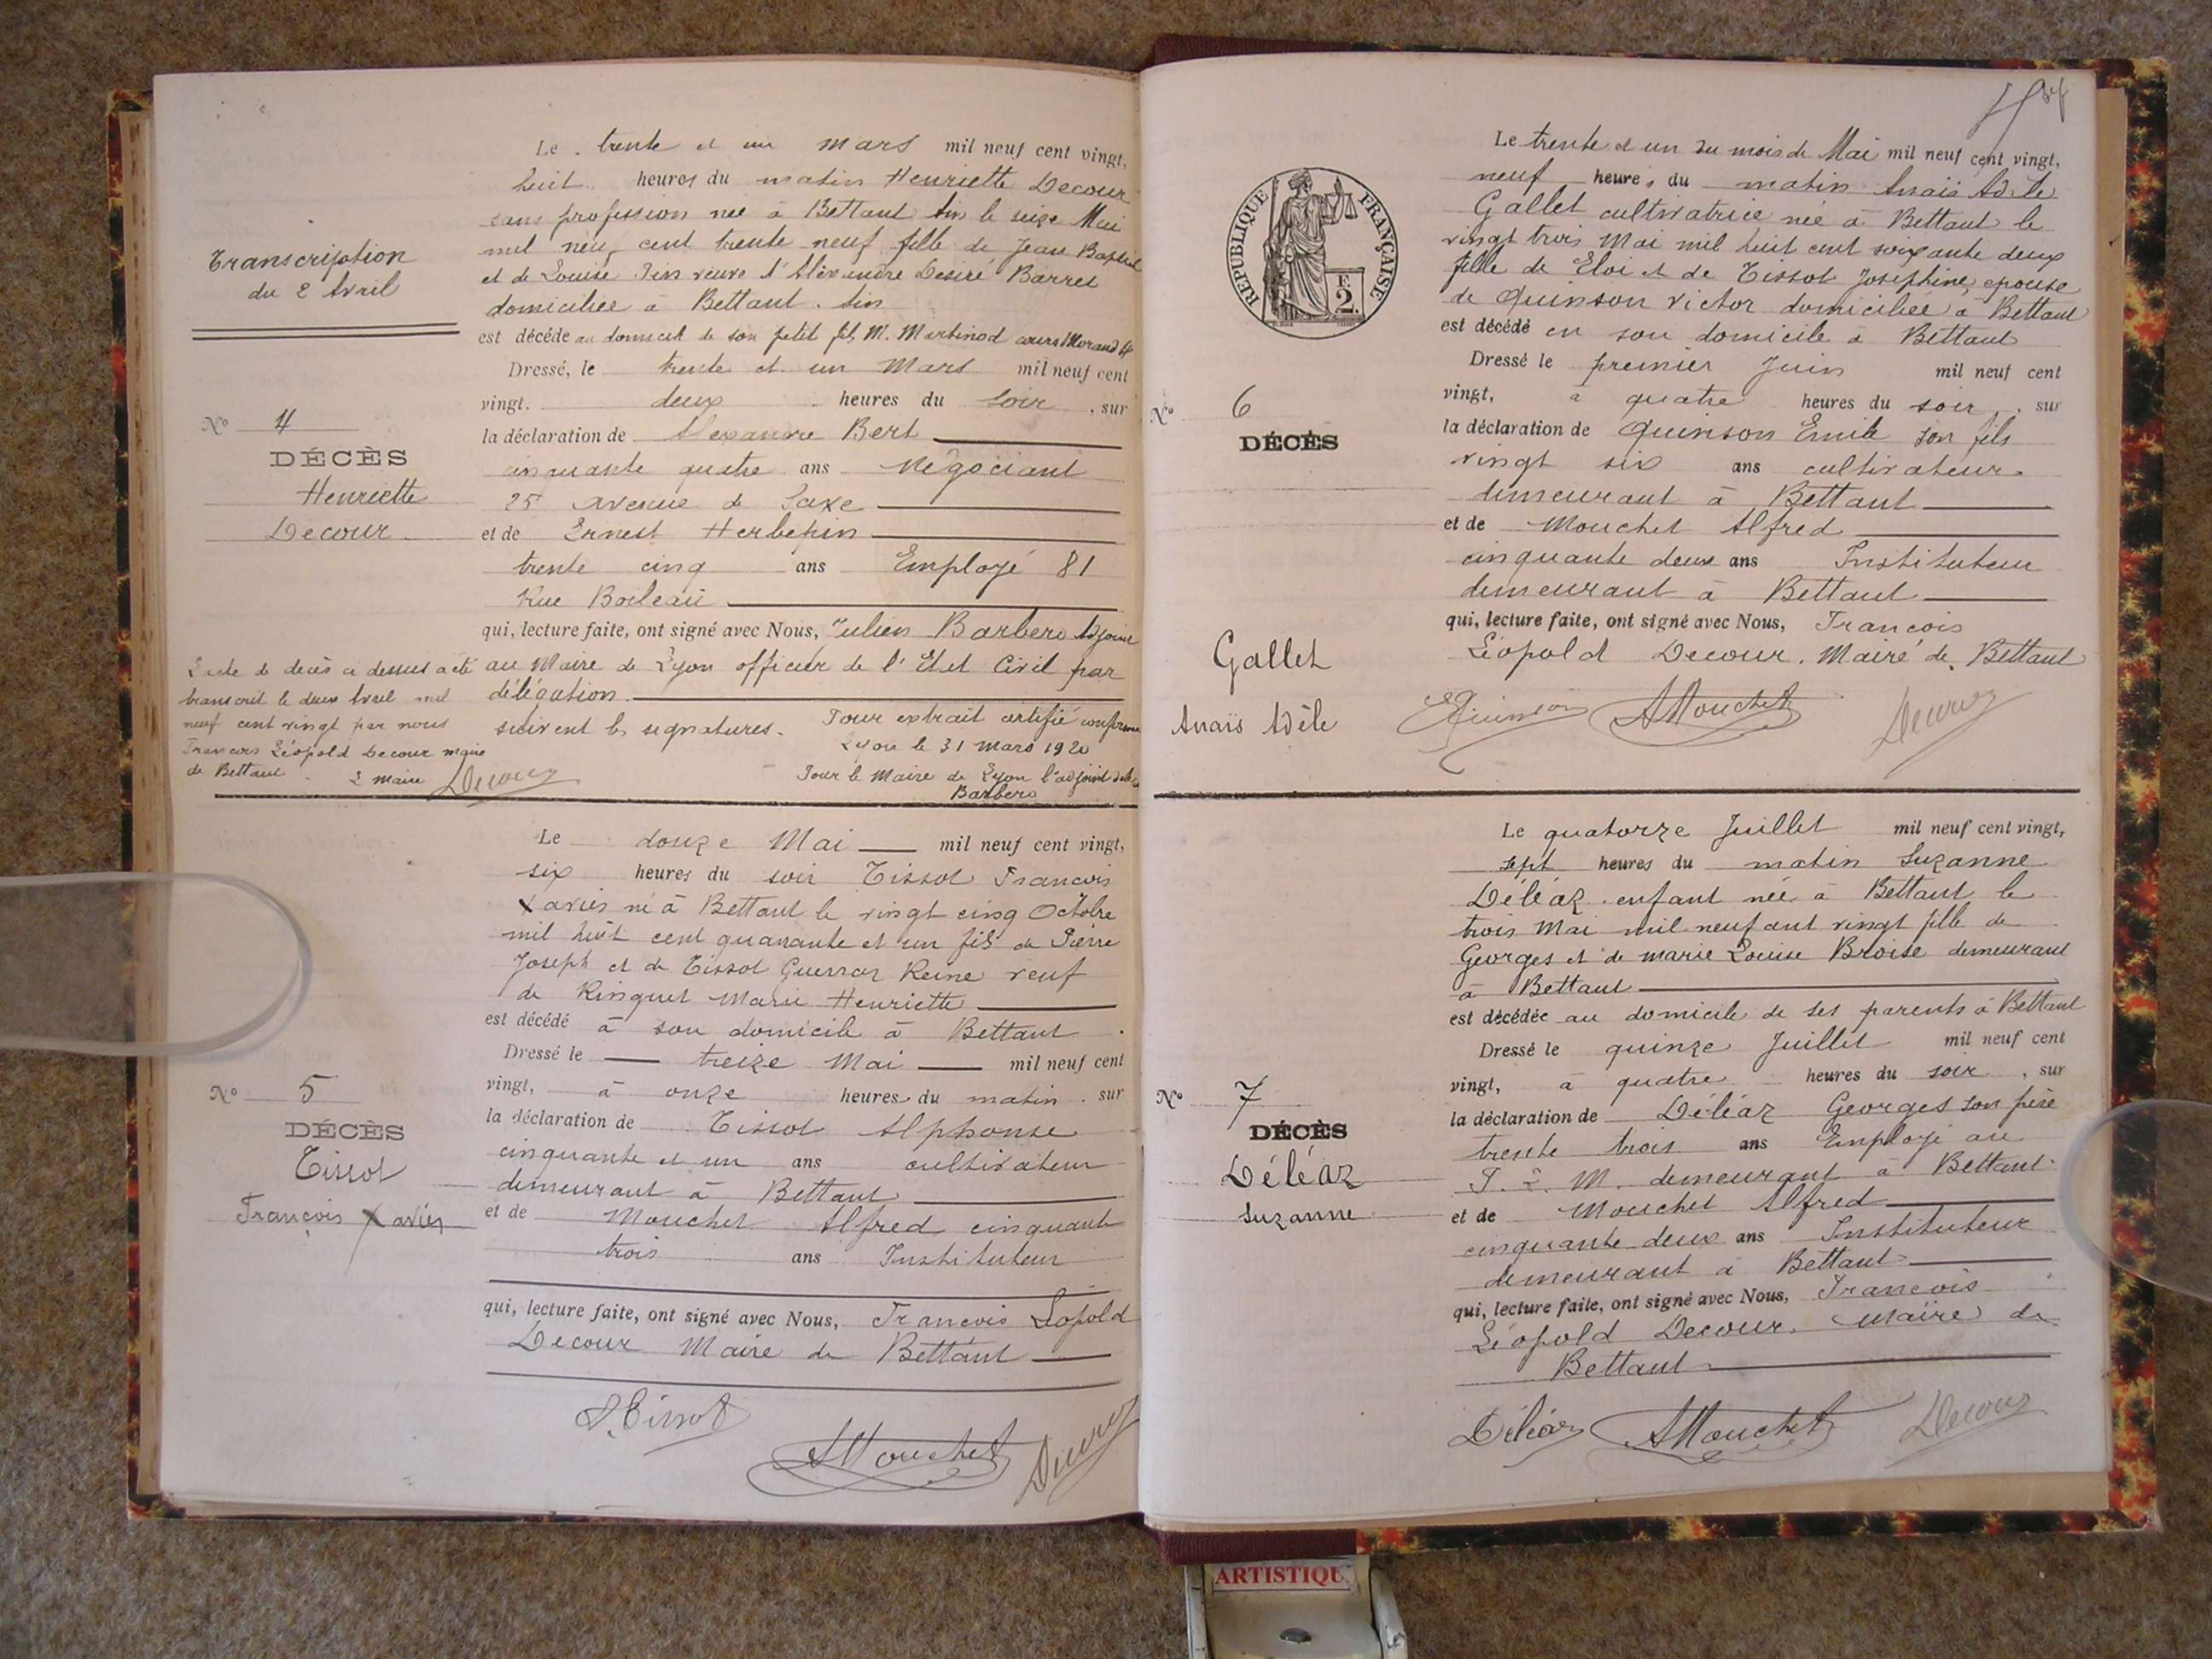 Transcription
du 2 Avril
Nº 4
DÉCÈS
Henriette
Decour
Le trente et un mars mil neuf cent vingt,
huit heures du matin Henriette Decour
sans profession née à Bettant Ain le seize Mai
mil neuf cent trente neuf fille de Jean Baptiste
et de Louise Jin veuve d'Alexandre Désiré Barret
domiciliée à Bettant. Ain
est décédé au domicile de son petit fils M. Martinod cours Morand 4
Dressé, le trente et un Mars mil neuf cent
vingt. deux heures du soir, sur
la déclaration de Alexandre Bert
cinquante quatre ans négociant
25 avenue de Saxe
et de Ernest Herbepin
trente cinq ans Employé 81
Rue Boileau
qui, lecture faite, ont signé avec Nous, Julien Barbero Adjoint
au Maire de Lyon officier de l'Etat Civil par
délégation.
suivent les signatures. Pour extrait certifié conforme
Lyon le 31 mars 1920
Pour le Maire de Lyon l'adjoint
Barbero
L'acte de décès ci dessus a été
transcrit le deux Avril mil
neuf cent vingt par nous
François Léopold Decour maire
de Bettant. L maire Decour
Nº 5
DÉCÈS
Tissot
François Xavier
Le douze Mai mil neuf cent vingt,
six heures du soir Tissot François
Xavier né à Bettant le vingt cinq Octobre
mil huit cent quarante et un fils de Pierre
Joseph et de Tissot Guerraz Reine veuf
de Rinquet Marie Henriette
est décédé à son domicile à Bettant.
Dressé le treize Mai mil neuf cent
vingt, à onze heures du matin. sur
la déclaration de Tissot Alphonse
cinquante et un ans cultivateur
demeurant à Bettant
et de Mouchet Alfred cinquante
trois ans Instituteur
qui, lecture faite, ont signé avec Nous, François Léopold
Decour Maire de Bettant
A. Tissot
AMouchet Decour
RÉPUBLIQUE FRANÇAISE
F.
2.
Nº 6
DÉCÈS
Gallet
Anaïs Adèle
Le trente et un du mois de Mai mil neuf cent vingt,
neuf heures du matin Anaïs Adèle
Gallet cultivatrice née à Bettant le
vingt trois Mai mil huit cent soixante deux
fille de Eloi et de Tissot Joséphine, épouse
de Quinson Victor domiciliée à Bettant
est décédé en son domicile à Bettant
Dressé le premier Juin mil neuf cent
vingt, à quatre heures du soir, sur
la déclaration de Quinson Emile son fils
vingt six ans cultivateur
demeurant à Bettant
et de Mouchet Alfred
cinquante deux ans Instituteur
demeurant à Bettant
qui, lecture faite, ont signé avec Nous, François
Léopold Decour. Maire de Bettant
EQuinson AMouchet Decour
Nº 7
DÉCÈS
Déléaz
Suzanne
Le quatorze Juillet mil neuf cent vingt,
sept heures du matin Suzanne
Déléaz enfant née à Bettant le
trois Mai mil neuf cent vingt fille de
Georges et de marie Louise Broise demeurant
à Bettant
est décédée au domicile de ses parents à Bettant
Dressé le quinze Juillet mil neuf cent
vingt, à quatre heures du soir, sur
la déclaration de Déléaz Georges son père
trente trois ans Employé au
P. L. M. demeurant à Bettant
et de Mouchet Alfred
cinquante deux ans Instituteur
demeurant à Bettant
qui, lecture faite, ont signé avec Nous, François
Léopold Decour. Maire de
Bettant
Déléaz AMouchet Decour
ARTISTIQU